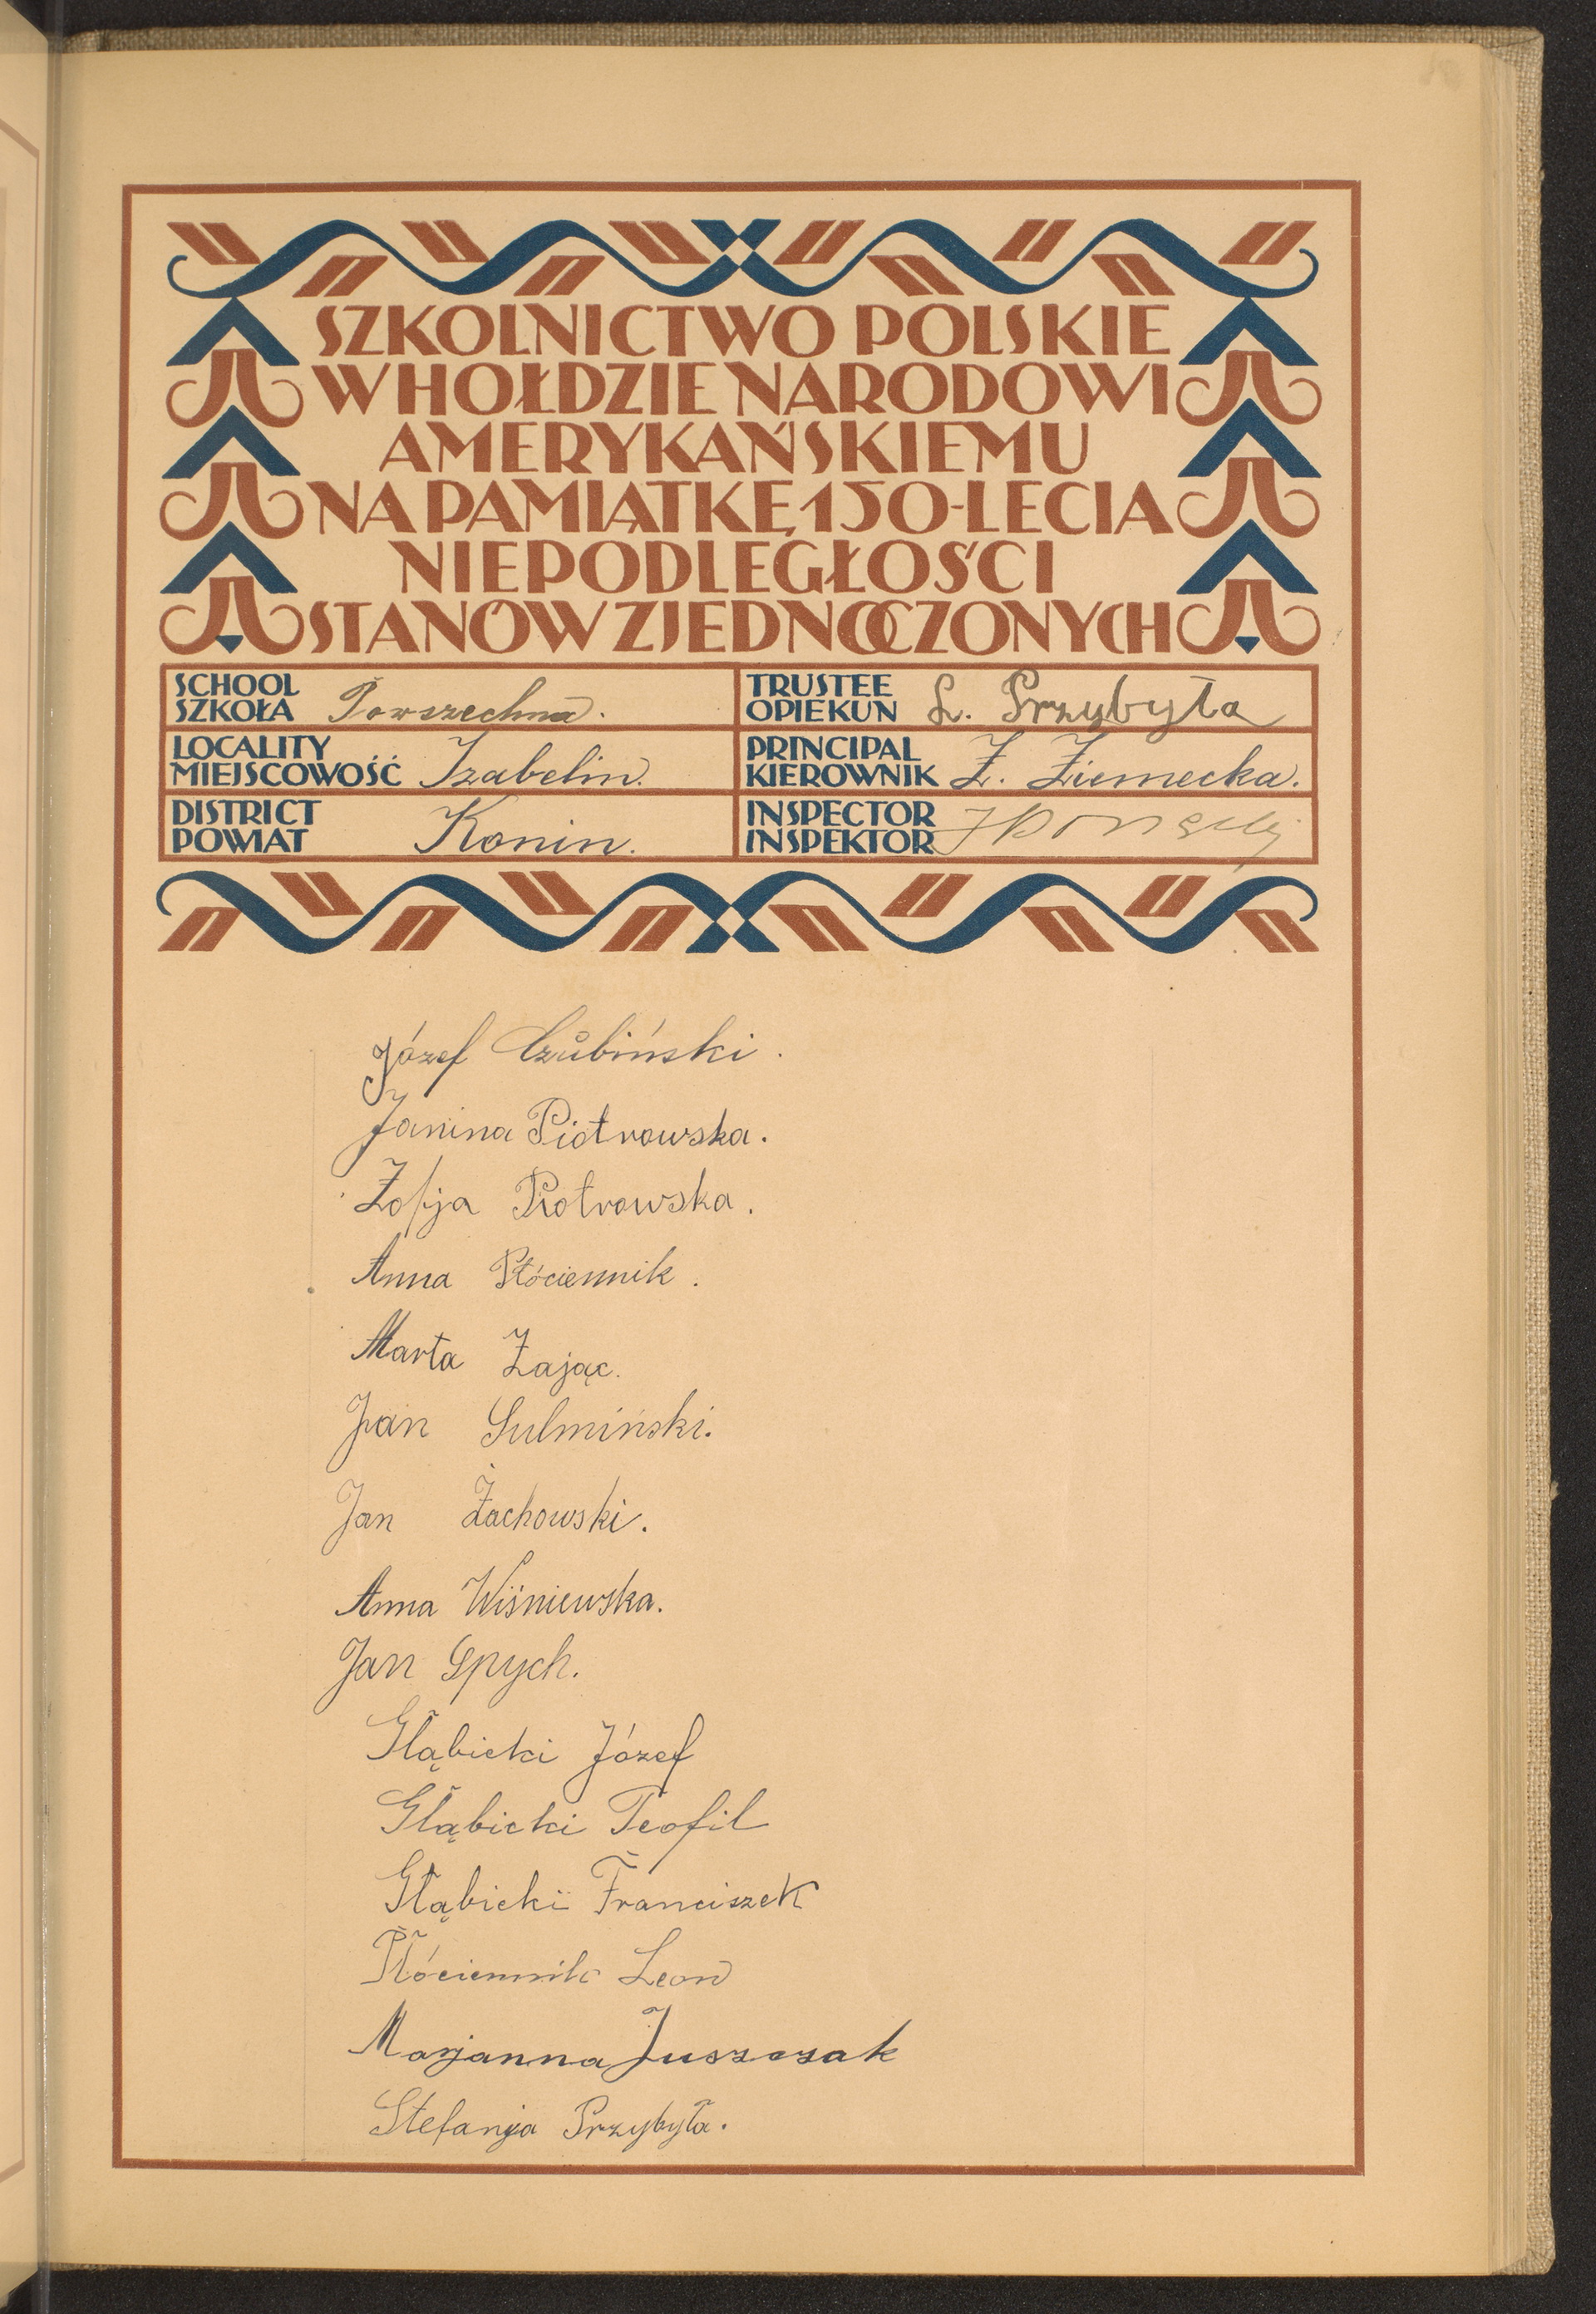 SZKOLNICTWO POLSKIE
W HOŁDZIE NARODOWI
AMERYKAŃSKIEMU
NA PAMIĄTKĘ 150-LECIA
NIEPODLEGŁOŚCI
STANÓW ZJEDNOCZONYCH
SCHOOL
SZKOŁA Powszechna.
TRUSTEE
OPIEKUN L. Przybyła
LOCALITY
MIEJSCOWOŚĆ Izabelin.
PRINCIPAL
KIEROWNIK Z. Ziemecka.
DISTRICT
POWIAT Konin.
INSPECTOR
INSPEKTOR
Józef Czubiński.
Janina Piotrowska.
Zofja Piotrowska.
Anna Płóciennik.
Marta Zając.
Jan Sulmiński.
Jan Żachowski.
Anna Wiśniewska.
Jan Spych.
Głąbicki Józef
Głąbicki Teofil
Głąbicki Franciszek
Płóciennik Leon
Marjanna Juszczak
Stefanja Przybyła.